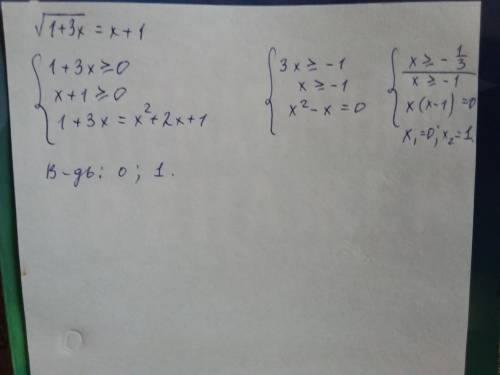 √1+3x = x+1
{ 1+3x ≥ 0
x+1 ≥ 0
1+3x = x²+2x+1
{ 3x ≥ -1
x ≥ -1
x²-x = 0
{ x ≥ -1/3
x ≥ -1
x(x-1) = 0
x₁=0; x₂=1.
В-дь: 0; 1.